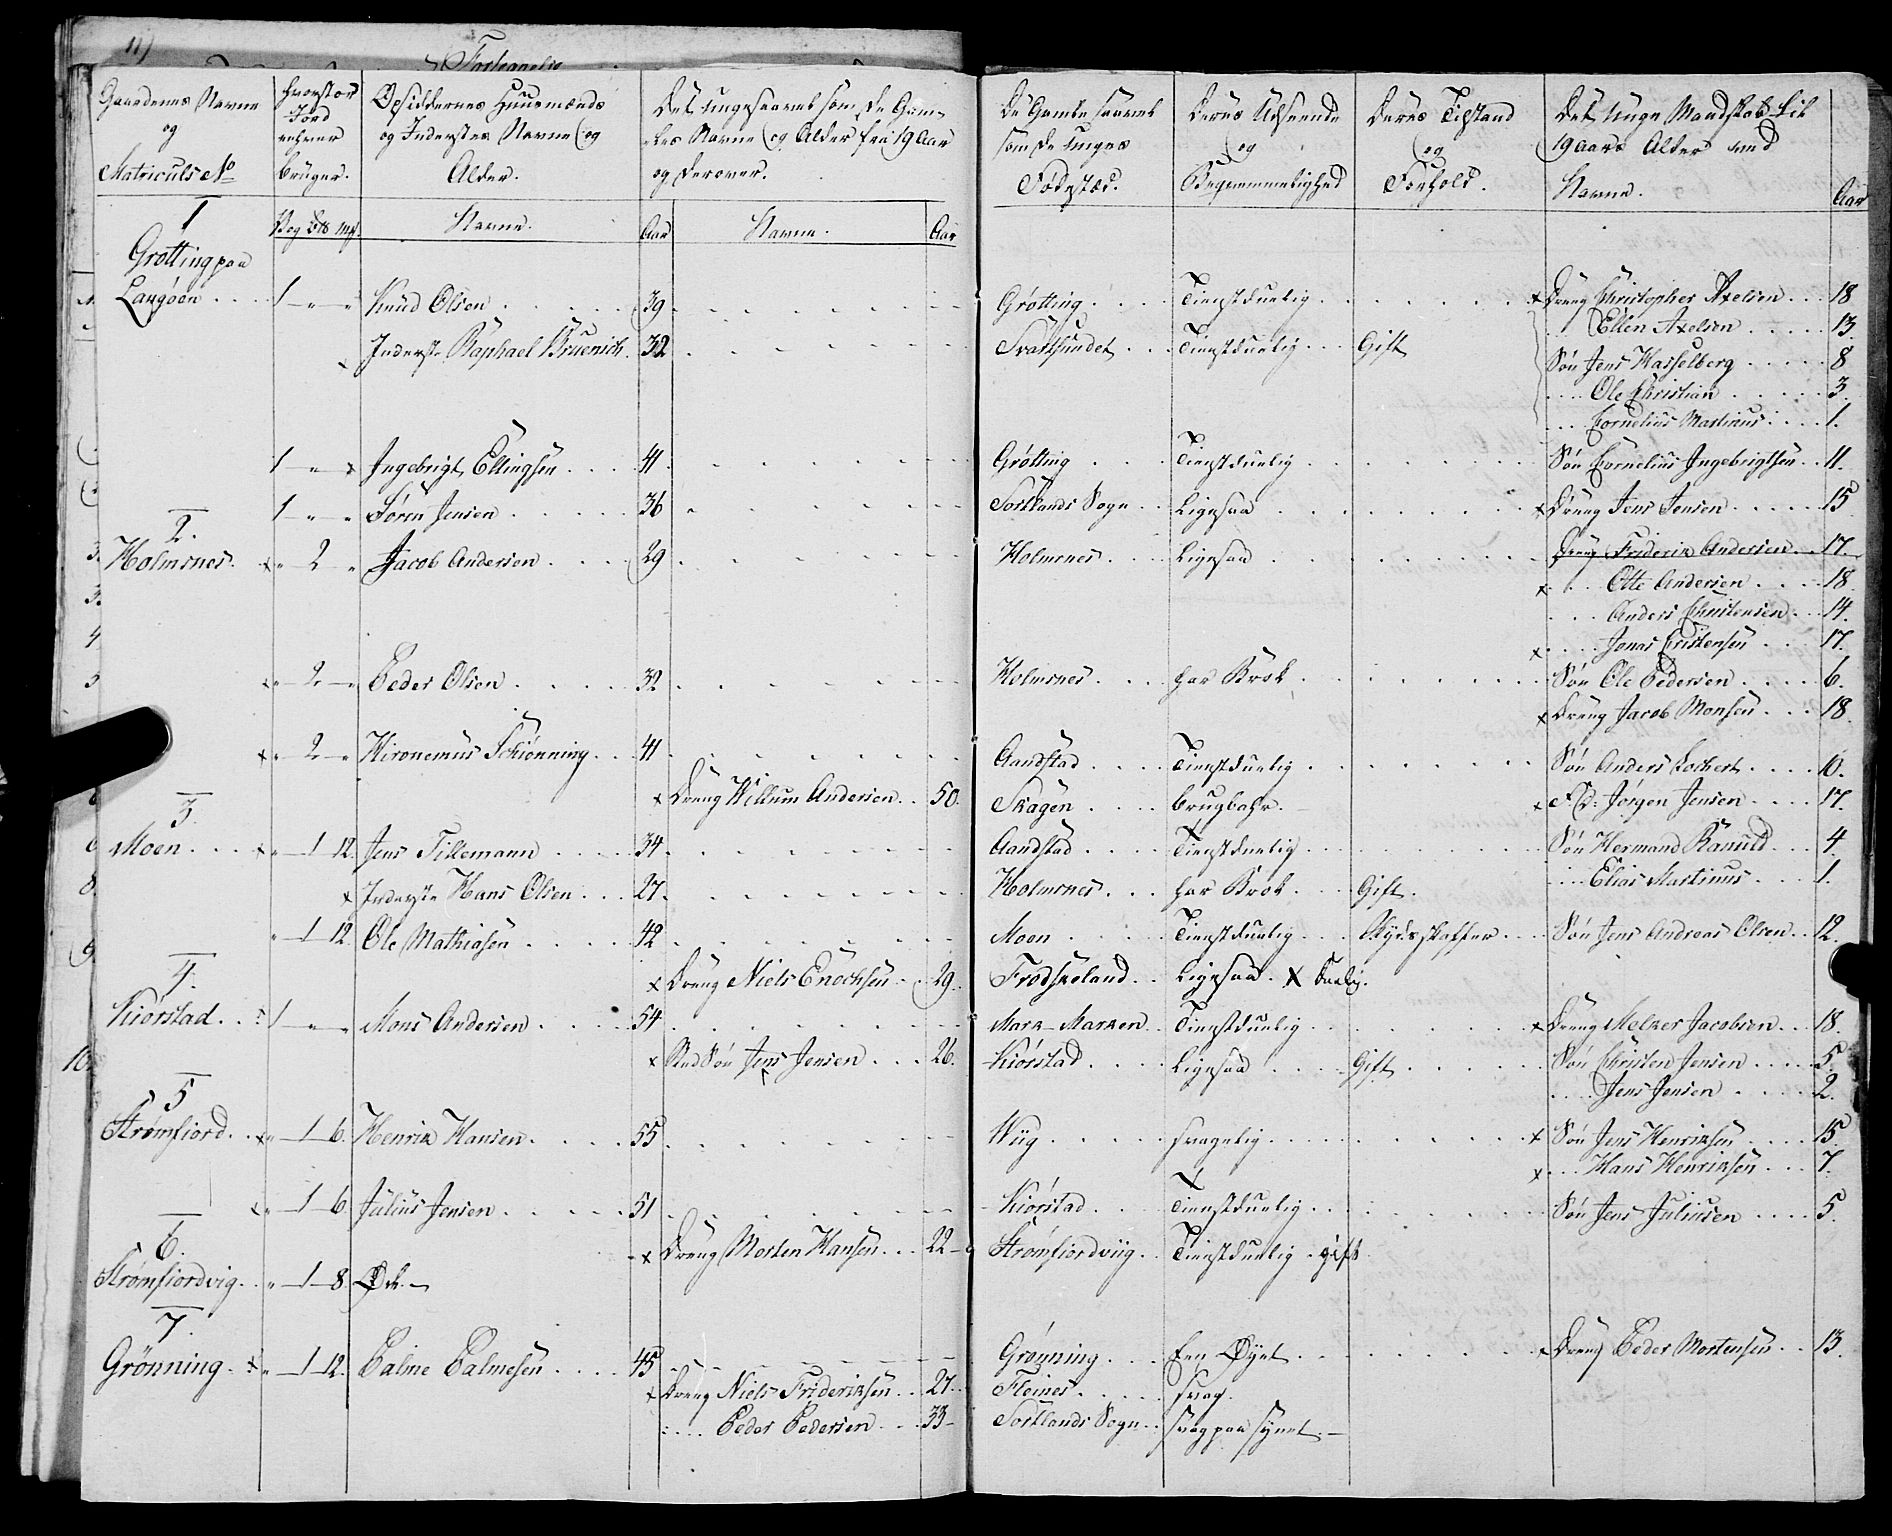 11)
Fortegnelse
Gaardenes Navne
og
Matriculs No
hvorstor
Jord
enhver
bruger.
Opsiddernes Huusmænds
og Inderstes Navne og
Alder.
Det unge saavel som de Gam-
les Navne og Alder fra 19 Aar
og derover.
De Gamle saavel
som de unges
Fødested.
Deres Udseende
og
Beqvemmelighed
Deres Tilstand
og
Forhold.
Det unge Mandskab til
19 Aars Alder med
Navne.
Aar
Navne. Aar Navne. Aar
1
Grøtting paa
Langøen 1 - " - " Knud Olsen 39 Grøtting Tienstduelig x Dreng Christopher Axelsen 18
Ellen Axelsen 13
Inderste Raphael Bruenich 32 Svartsundet Tienstduelig Gift Søn Jens Hasselberg 8
Ole Christian 3
Cornelius Martinus 1.
1 " x Ingebrigt Ellingsen 41 Grøtting Tienstduelig Søn Cornelius Ingebrigtsen 11.
1 - " - " Søren Jensen 36 Sortlands Sogn Ligesaa x Dreng Jens Jensen 15
2.
Holmsnes x " 2 " Jacob Andersen 29 Holmsnes Ligesaa Dreng Friderik Andersen 17
x Otte Andersen 18
Anders Christensen 14
x Jonas Cristensen 17.
x " 2 - " Peder Olsen 32 Holmsnes har Brok Søn Ole Pedersen 6.
x Dreng Jacob Monsen 18
x " 2 - " Hironemus Schiønning 41 Aandstad Tienstduelig Søn Anders Lockert 10.
x Dreng Willum Andersen 50 Skagen brugbahr. x Jørgen Jensen 17
3.
Moen x " 1 12. Jens Tillemann 34 Aandstad Tienstduelig Søn Hermand Ranuld 4
x Inderste Hans Olsen 27 Holmsnes har Brok Gift. Elias Martinus 1.
" 1 12 Ole Mathiasen 42 Moen Tienstduelig Skydsskaffer Søn Jens Andreas Olsen 12.
x Dreng Niels Enochsen 29 Frodskeland Ligesaa x
4.
Kiørstad 1 " " Mons Andersen 54 Mark-Marken Tienstduelig x Dreng Melker Jacobsen 18.
x Jens Jensen 26 Kiørstad Ligesaa Gift Søn Christen Jensen 5
Jens Jensen 2.
5
Strømfiord x " 1 6. Henrik Hansen 55 Wiig svagelig x Søn Jens Henriksen 15
x Hans Henriksen 7.
x " 1 6. Julius Jensen 51 Kiørstad Tienstduelig Søn Jens Juliusen 5.
x Dreng Morten Hansen 22 Strømfiordviig Tienstduelig . gift
6.
Strømfiordvig " 1 8 Øde
7.
Grønning x " 1 12. Palme Palmesen 45 Grønning Een Øyet x Dreng Peder Mortensen 13
x Dreng Niels Frideriksen 27 Fleines svag.
Peder Pedersen 33 Sortlands Sogn svag paa Synet